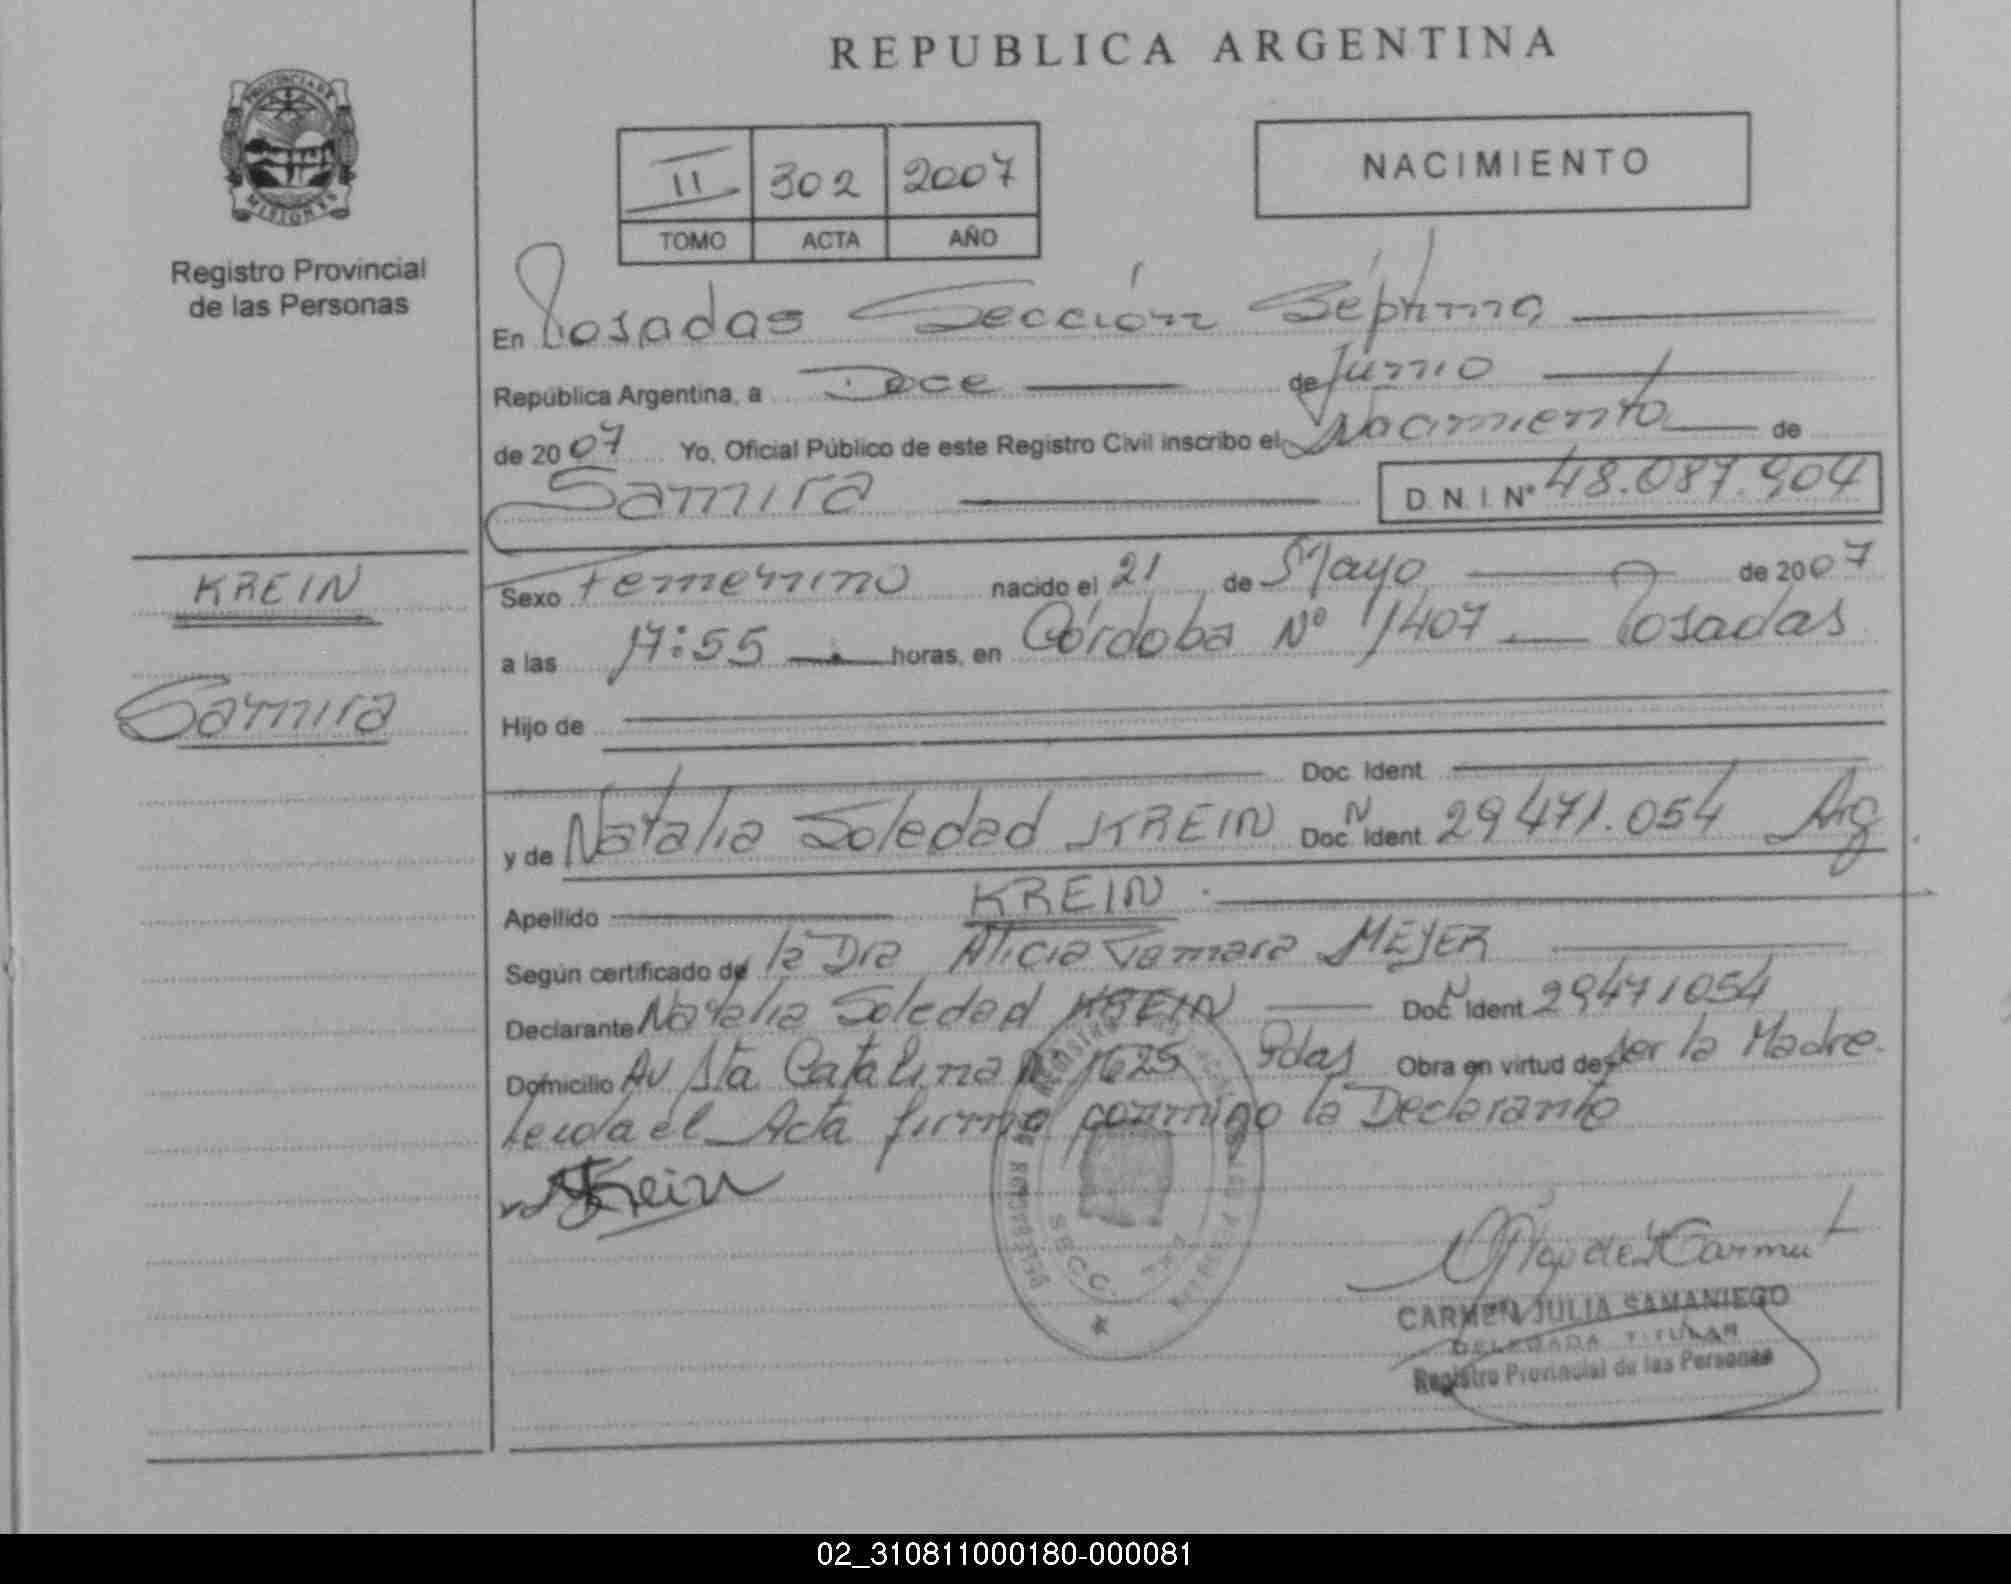 REPUBLICA ARGENTINA
PROVINCIA DE
MISIONES
Registro Provincial
de las Personas
II 302 2007
TOMO ACTA AÑO
NACIMIENTO
En Posadas Sección Séptima
República Argentina, a Doce de Junio
de 2007 Yo, Oficial Público de este Registro Civil inscribo el Nacimiento de
Samira D.N.I.Nº 48.087.904
KREIN
Samira
Sexo Femenino nacido el 21 de Mayo de 2007
a las 17:55 horas, en Córdoba Nº 1407 Posadas
Hijo de
Doc Ident
y de Natalia Soledad KREIN Doc N Ident 29471.054 Arg
Apellido KREIN
Según certificado de la Dra Alicia Tamara MEYER
Declarante Natalia Soledad KREIN Doc N Ident 29471054
Domicilio Av Sta Catalina Nº 1625 Pdas Obra en virtud de ser la Madre.
Leida el Acta firma conmigo la Declarante
NKrein
CARMEN JULIA SAMANIEGO
DELEGADA TITULAR
Registro Provincial de las Personas
02_310811000180-000081